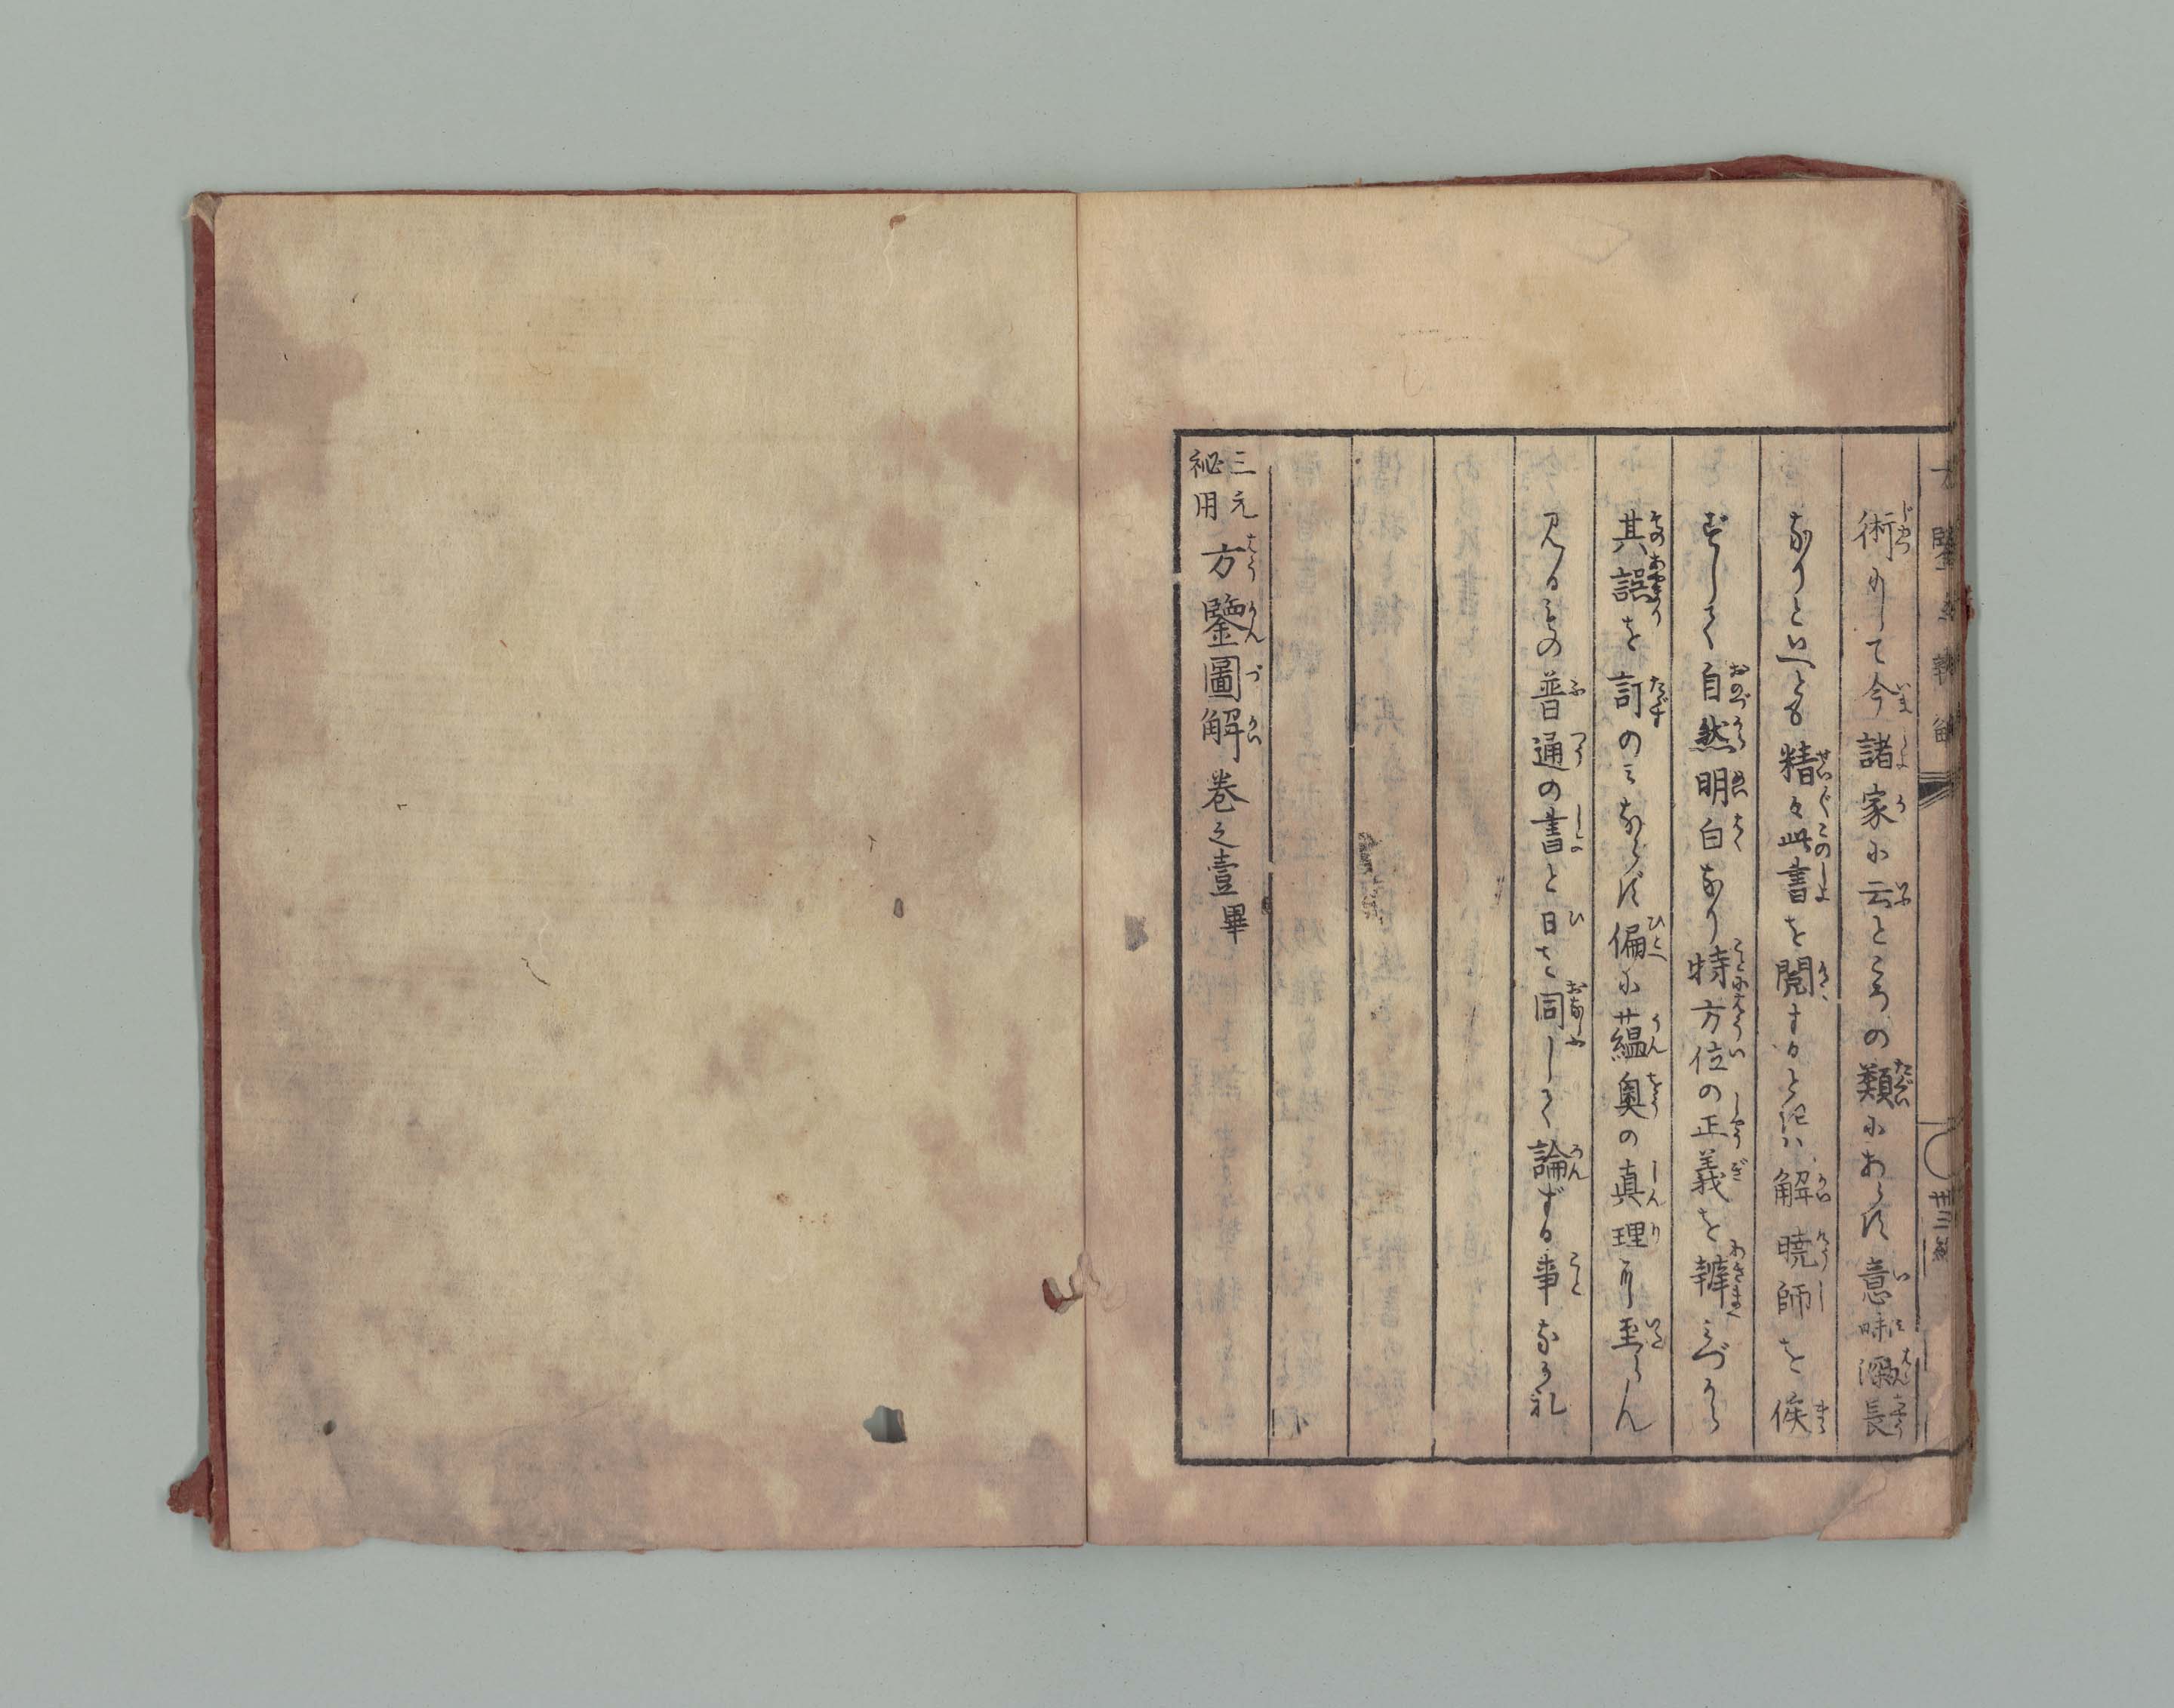 術にして今諸家に云ところの類にあらず意味深長
なりといへども精々此書を閲するときは解暁師を俟
ずして自然明白なり特方位の正義を辨へみづから
其誤を訂のみならず偏に蘊奥の真理に至らん
見るもの普通の書と日を同しく論ずる事なかれ
三元
祕用
方鑒圖解巻之壹畢
卅三